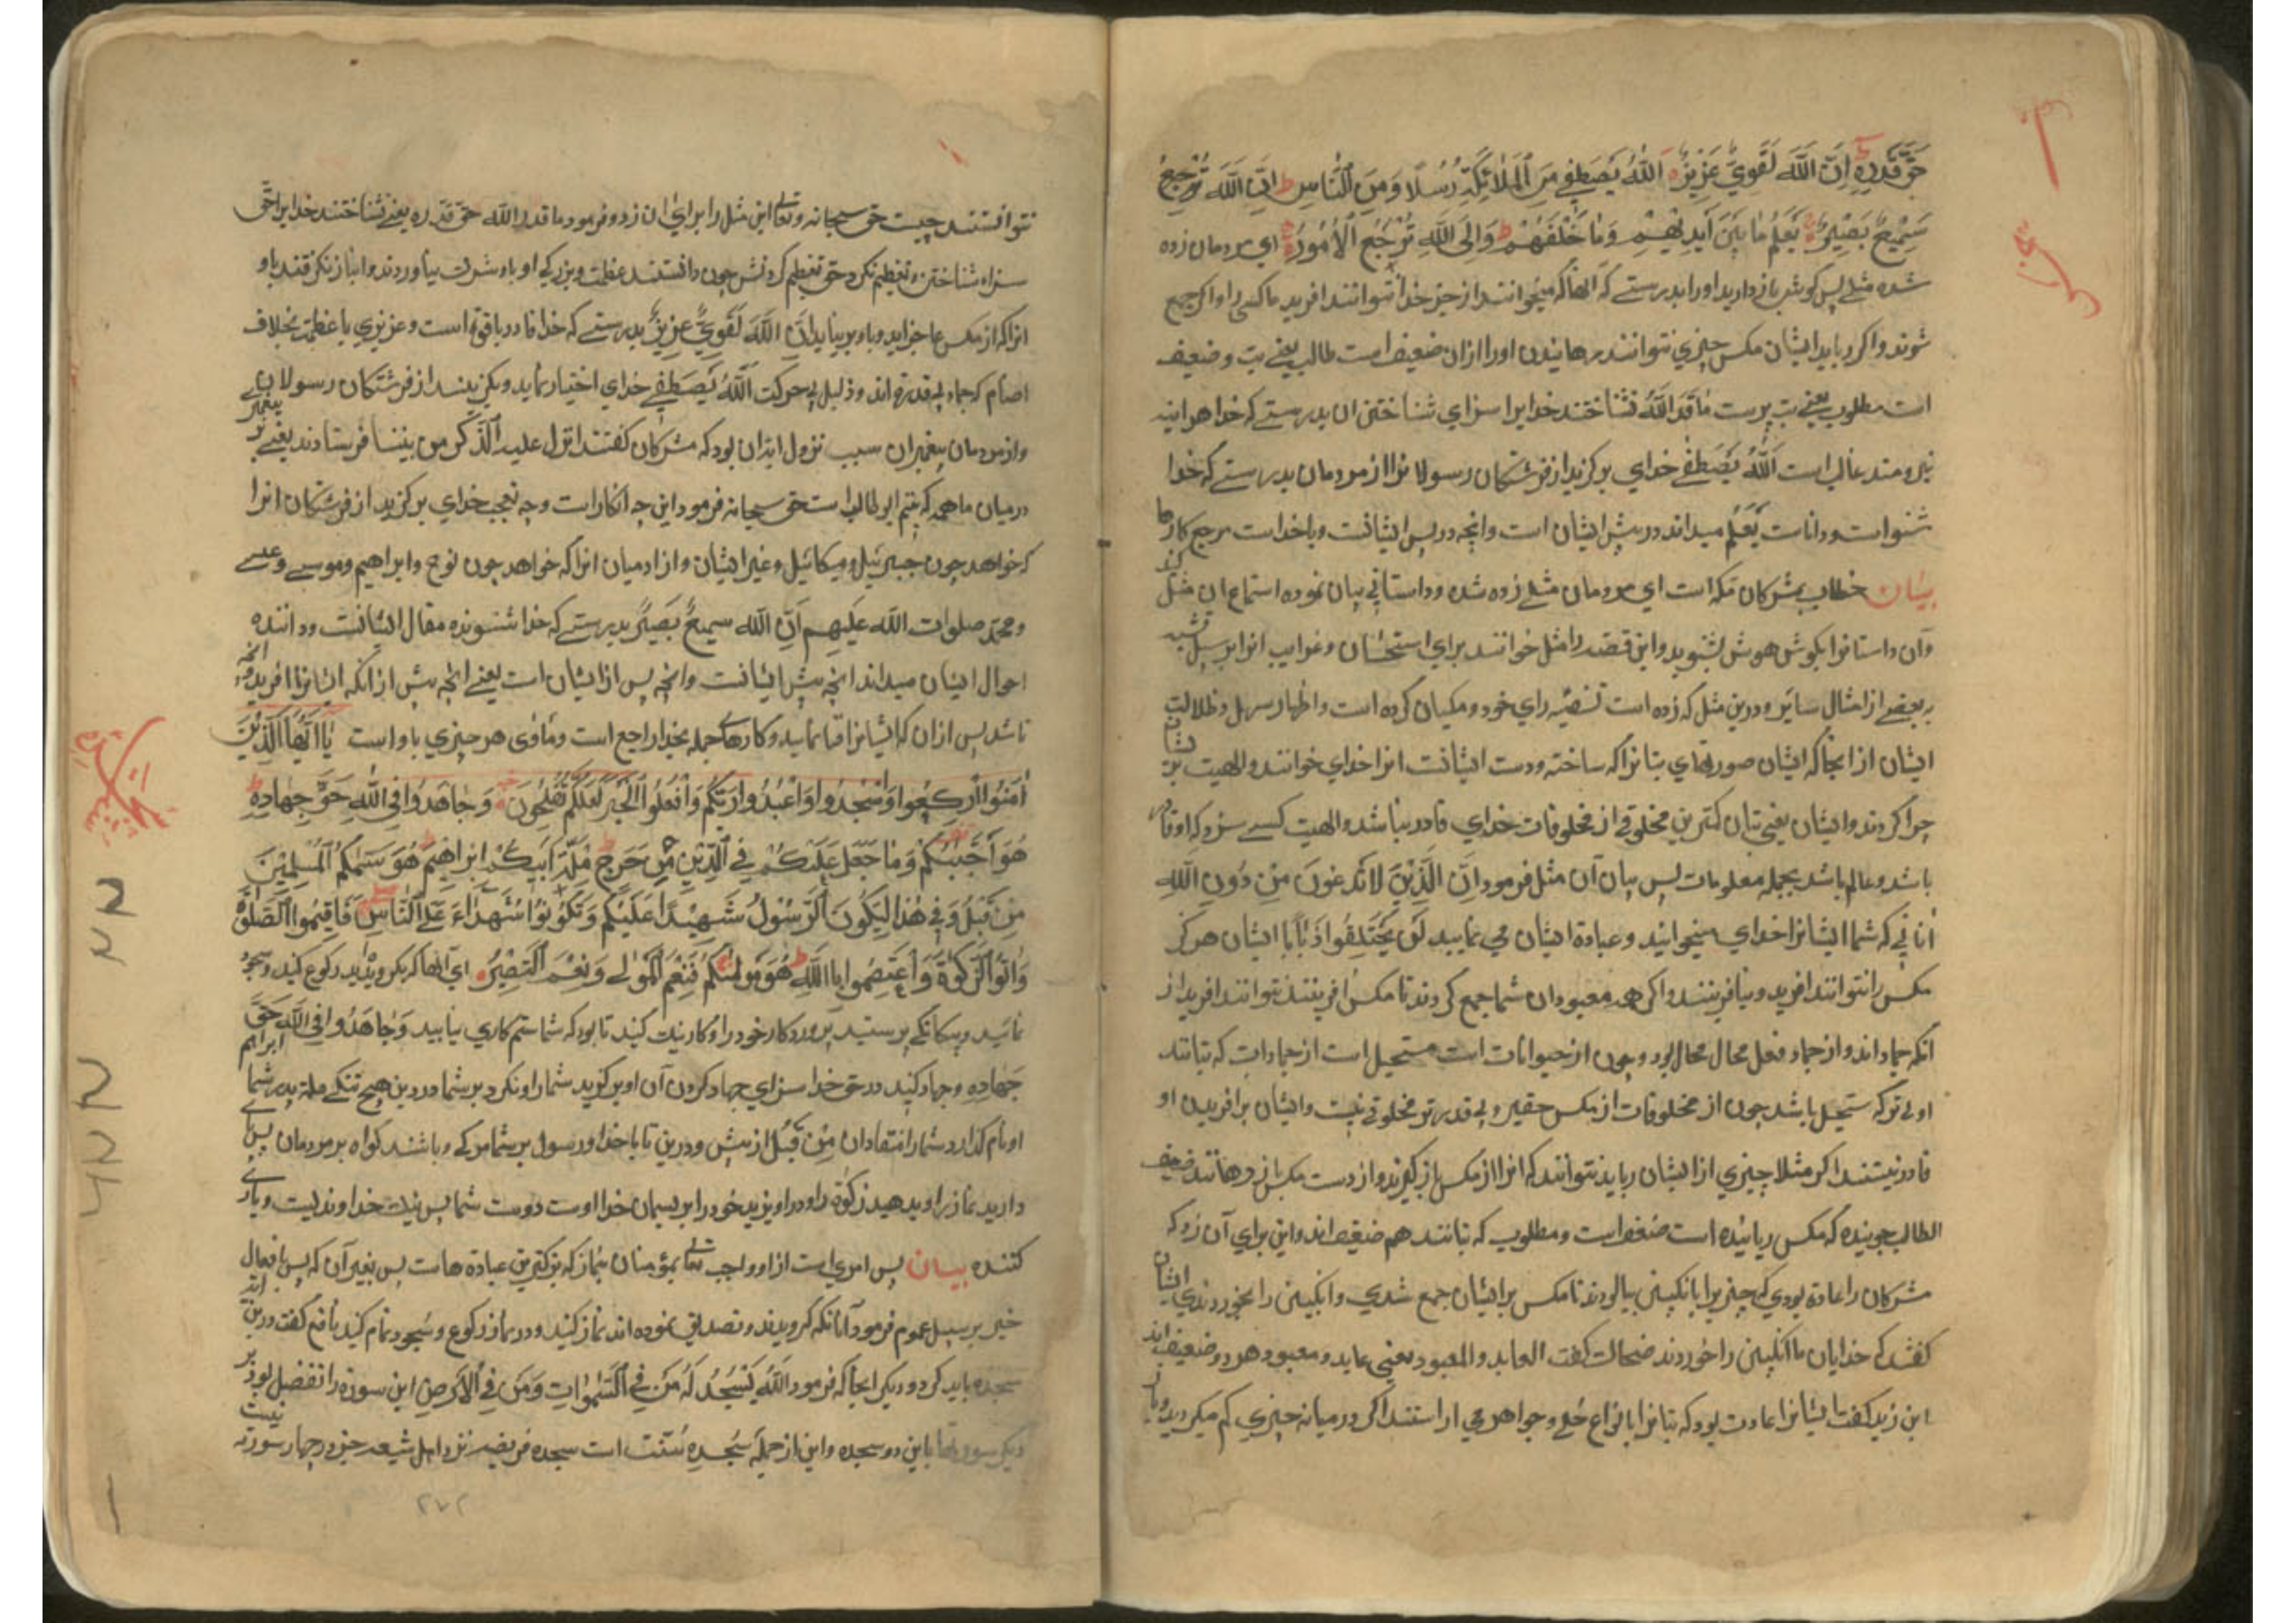 حَقَّ قَدْرِهِ اِنَّ اللّٰهَ لَقَوِيٌّ عَزِيزٌ اَللّٰهُ يَصْطَفِي مِنَ الْمَلٰائِكَةِ رُسُلًا وَمِنَ النَّاسِ اِنَّ اللّٰهَ
سَمِيعٌ بَصِيرٌ يَعْلَمُ مٰا بَيْنَ اَيْدِيهِمْ وَمٰا خَلْفَهُمْ وَاِلَى اللّٰهِ تُرْجَعُ الْاُمُورُ اي مردمان زده
شده مثلے پس كوش بازداريد اورا بدرستے كه انها كه ميخوانند از جز خدا نتوانند افريد ماكسى را و اكر جمع
شوند و اكر ربايد ايشان مكس چيزي نتوانند رهانيدن اورا ازان ضعيف است طالب يعنے بت و ضعيف
است مطلوب يعنے بت پرست مٰا قَدَرُ اللّٰهَ نشناختند خدايرا سزاي شناختن ان بدرستے كه خدا هراينه
نيرومند غالب است اَللّٰهُ يَصْطَفِے خداي بركزيد از فرشتكان رسولانرا از مردمان بدرستے كه خدا
شنواست و داناست يَعْلَمُ ميداند در پيش ايشان است و انچه در پس ايشانست و باخداست مرجع كارها
بيان خطاب بمشركان مكه است اي مردمان مثلے زده شده و داستانے بيان نموده استماع ان مثل كنيد
و آن داستانرا بكوش هوش بشنويد و اين قصه را مثل خوانند براي استحسان و غرايب انرا بر سبيل تشبيه
ببعضے از امثال ساير و درين مثل كه زده است راي خود و مكيان كرده است و اظهار و ظلالت
ايشان از انجا كه ايشان صورتهاي بتانرا كه ساخته ودست ايشانست انرا خداي خوانند و الهيت
چرا كردند و ايشان يعنى بتان كمترين مخلوقے از مخلوقات خداي قادر نباشد و الهيت كسے سزد كه او قادر
باشد و عالم باشد بجمله معلومات پس بيان آن مثل فرمود اِنَّ الَّذِيْنَ تَدْعُوْنَ مِنْ دُونِ اللّٰهِ
آنانے كه شما ايشانرا خداي ميخوانيد و عبادة ايشان مي نماييد لَنْ يَخْلُقُوا ذُبٰابًا ايشان هركز
مكس را نتوانند افريد و نيافرينند و اكر همه معبودان شما جمع كردند تا مكس افرينند نتوانند افريد از
انكه جماد اند و از جماد فعل محال محال بود و چون از حيوانات است مستحيل است از جمادات كه بتانند
اولے تر كه مستحيل باشد چون از مخلوقات از مكس حقير و بے قدر تر مخلوقے نيست و ايشان بر افريدن او
قادر نيستند اكر مثلا چيزي از ايشان ربايد نتوانند كه انرا از مكس باز كيرند و از دست مكس باز رهانند ضعيف
الطالب جوينده كه مكس رباينده است ضعف است و مطلوب كه بتانند هم ضعيف اند و اين براي آن زد كه
مشركان را عادة بودي كه چيزيرا بانكبين بيالودند تا مكس بر ايشان جمع شدي و انكبين را بخوردندي ايشان
كفتند كه خدايان ما انكبين را خوردند ضحاك كفت العابد و المعبود يعنى عابد و معبود هر دو ضعيف اند
ابن زيد كفت ايشانرا عادت بود كه بتانرا بانواع حلے و جواهر مي اراستند اكر در ميانه چيزي كم ميكرديد
نتوانستند چيست حق سبحانه و تعالى اين مثل را براي ان زد و فرمود ما قدر الله حق قدره يعنے نشناختند خدايرا حق
سزاء شناختن و تعظيم نكردند حق تعظيم كردنش چون دانستند عظمت و بزركي او باو شرك بياوردند و انباز نكرفتند باو
انرا كه از مكس عاجز ايد و باو برنيايد اِنَّ اللّٰهَ لَقَوِيٌّ عَزِيزٌ بدرستے كه خدا قادر باقوة است و عزيزي باعظمت بخلاف
اصنام كه جماد بے قدرة اند و ذليل بے حركت اَللّٰهُ يَصْطَفِے خداي اختيار نمايد و بكزيند از فرشتكان رسولان
و از مردمان پيغمبران سبب نزول ايه ان بود كه مشركان كفتند انزل عليه الذكر من بيننا فرستادند يعنے بر پيغمبر
در ميان ما همه كه يتيم ابوطالب است حق سبحانه فرمود اين چه انكار است و چه تعجب خداي بركزيد از فرشتكان انرا
كه خواهد چون جبرئيل و ميكائيل و غير ايشان و از ادميان انرا كه خواهد چون نوح و ابراهيم و موسے و عيسے
و محمد صلوات الله عليهم اِنَّ الله سميعٌ بَصيرٌ بدرستے كه خدا شنونده مقال ايشانست و داننده
احوال ايشان ميداند انچه پيش ايشانست و انچه پس از ايشان است يعنے انچه پيش از انكه ايشانرا افريد و انچه
باشد پس ازان كه ايشانرا فنا نمايد و كارهاے جمله بخدا راجع است و ماوى هر چيزي باو است يٰا اَيُّهَا الَّذِيْنَ
اٰمَنُوا ارْكَعُوا وَاسْجُدُوا وَاعْبُدُوا رَبَّكُمْ وَافْعَلُوا الْخَيْرَ لَعَلَّكُمْ تُفْلِحُونَ وَجٰاهِدُوا فِي اللّٰهِ حَقَّ جِهٰادِهِ
هُوَ اجْتَبٰيكُمْ وَمٰا جَعَلَ عَلَيْكُمْ فِي الدِّيْنِ مِنْ حَرَجٍ مِلَّةَ اَبِيكُمْ اِبْرٰاهِيمَ هُوَ سَمّٰكُمُ الْمُسْلِمِيْنَ
مِنْ قَبْلُ وَفِي هٰذٰا لِيَكُونَ الرَّسُوْلُ شَهِيْدًا عَلَيْكُمْ وَتَكُوْنُوا شُهَدٰاءَ عَلَى النَّاسِ فَاَقِيْمُوا الصَّلٰوةَ
وَاٰتُوا الزَّكٰوةَ وَاعْتَصِمُوا بِاللّٰهِ هُوَ مَوْلٰيكُمْ فَنِعْمَ الْمَوْلٰى وَنِعْمَ النَّصِيْرُ اي آنها كه بكرويديد ركوع كنيد و سجود
نمائيد و بيكانكے پرستيد پروردكار خود را و كار نيك كنيد تا بود كه شما رستكاري يابيد وَجٰاهِدُوا فِي اللّٰهِ حَقَّ
جِهٰادِهِ و جهاد كنيد در حق خدا سزاي جهاد كردن آن او بركزيد شما را و نكرد بر شما در دين هيچ تنكے ملة پدر شما ابراهيم
او نام كذارد شما را منقادان مِنْ قَبْلُ از پيش و درين تا باخدا و رسول بر شما و باشند كواه بر مردمان پس
داريد نماز را و بدهيد زكوة را و دراويزيد خود را بريسمان خدا اوست دوست شما پس نيك خداونديست و ياري
كننده بيان پس امري است از او واجب تعالى بمؤمنان بنماز كه بزركترين عبادة هاست پس بغير آن كه پس بافعال
خير بر سبيل عموم فرمود آنانكه كرويدند و تصديق نموده اند نماز كنيد و در نماز ركوع و سجود تمام كنيد نافع كفت درين
سجده بايد كرد و ديكر انجا كه فرمود اللّٰهُ يَسْجُدُ لَهُ مَنْ فِي السَّمٰوٰاتِ وَمَنْ فِي الْاَرْضِ اين سوره را تفضيل بود بر
ديكر سورتها باين دو سجده و اين از جمله سجده سنت است سجده فريضه نزد اهل شيعه جز در چهار سوره نيست
٢٧٢